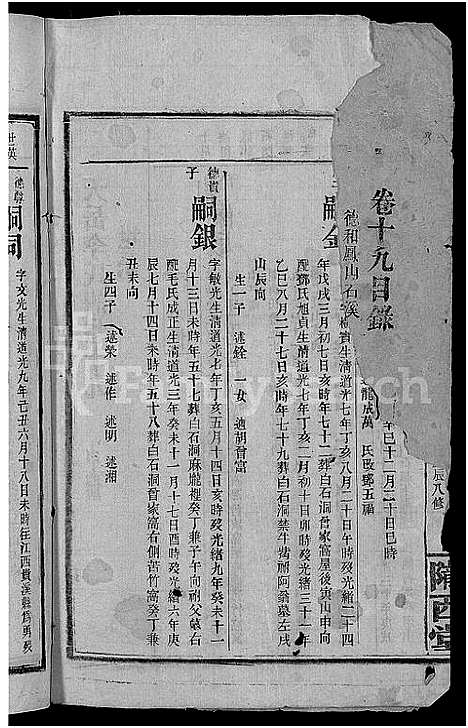 卷十九目錄
德和鳳山石溪
龍成萬 氏改鄧五福
年巳十二月二十日巳時
辰八修
隴西堂
嗣金
寶生清道光七年丁亥八月二十日午時歿光緒二十四
年戊戌三月初七日亥時年七十二葬白石洞曾家窩屋後寅山申向
配鄧氏旭貞生清道光七年丁亥二月初八日亥時歿光緒三十一年
乙巳八月二十七日亥時年七十九葬白石洞禁牛嘴祠阿翁墓左戌
山辰向
生一子 述銓 一女 適胡會富
德貴
子
嗣銀
字敏光生清道光七年丁亥五月十四日亥時歿光緒九年癸未十一
月十三日未時年五十七葬白石洞麻龍裡癸丁兼子午向祠父墓右
配毛氏成正生清道光三年癸未十一月十七日酉時歿光緒六年庚
辰七月十四日未時年五十八葬白石洞曾家窩右側苦竹窩癸丁兼
丑未向
生四子 述榮 述作 述明 述湘
嗣同
字文光生清道光九年己丑六月十八日未時在江西貴溪縣爲勇歿